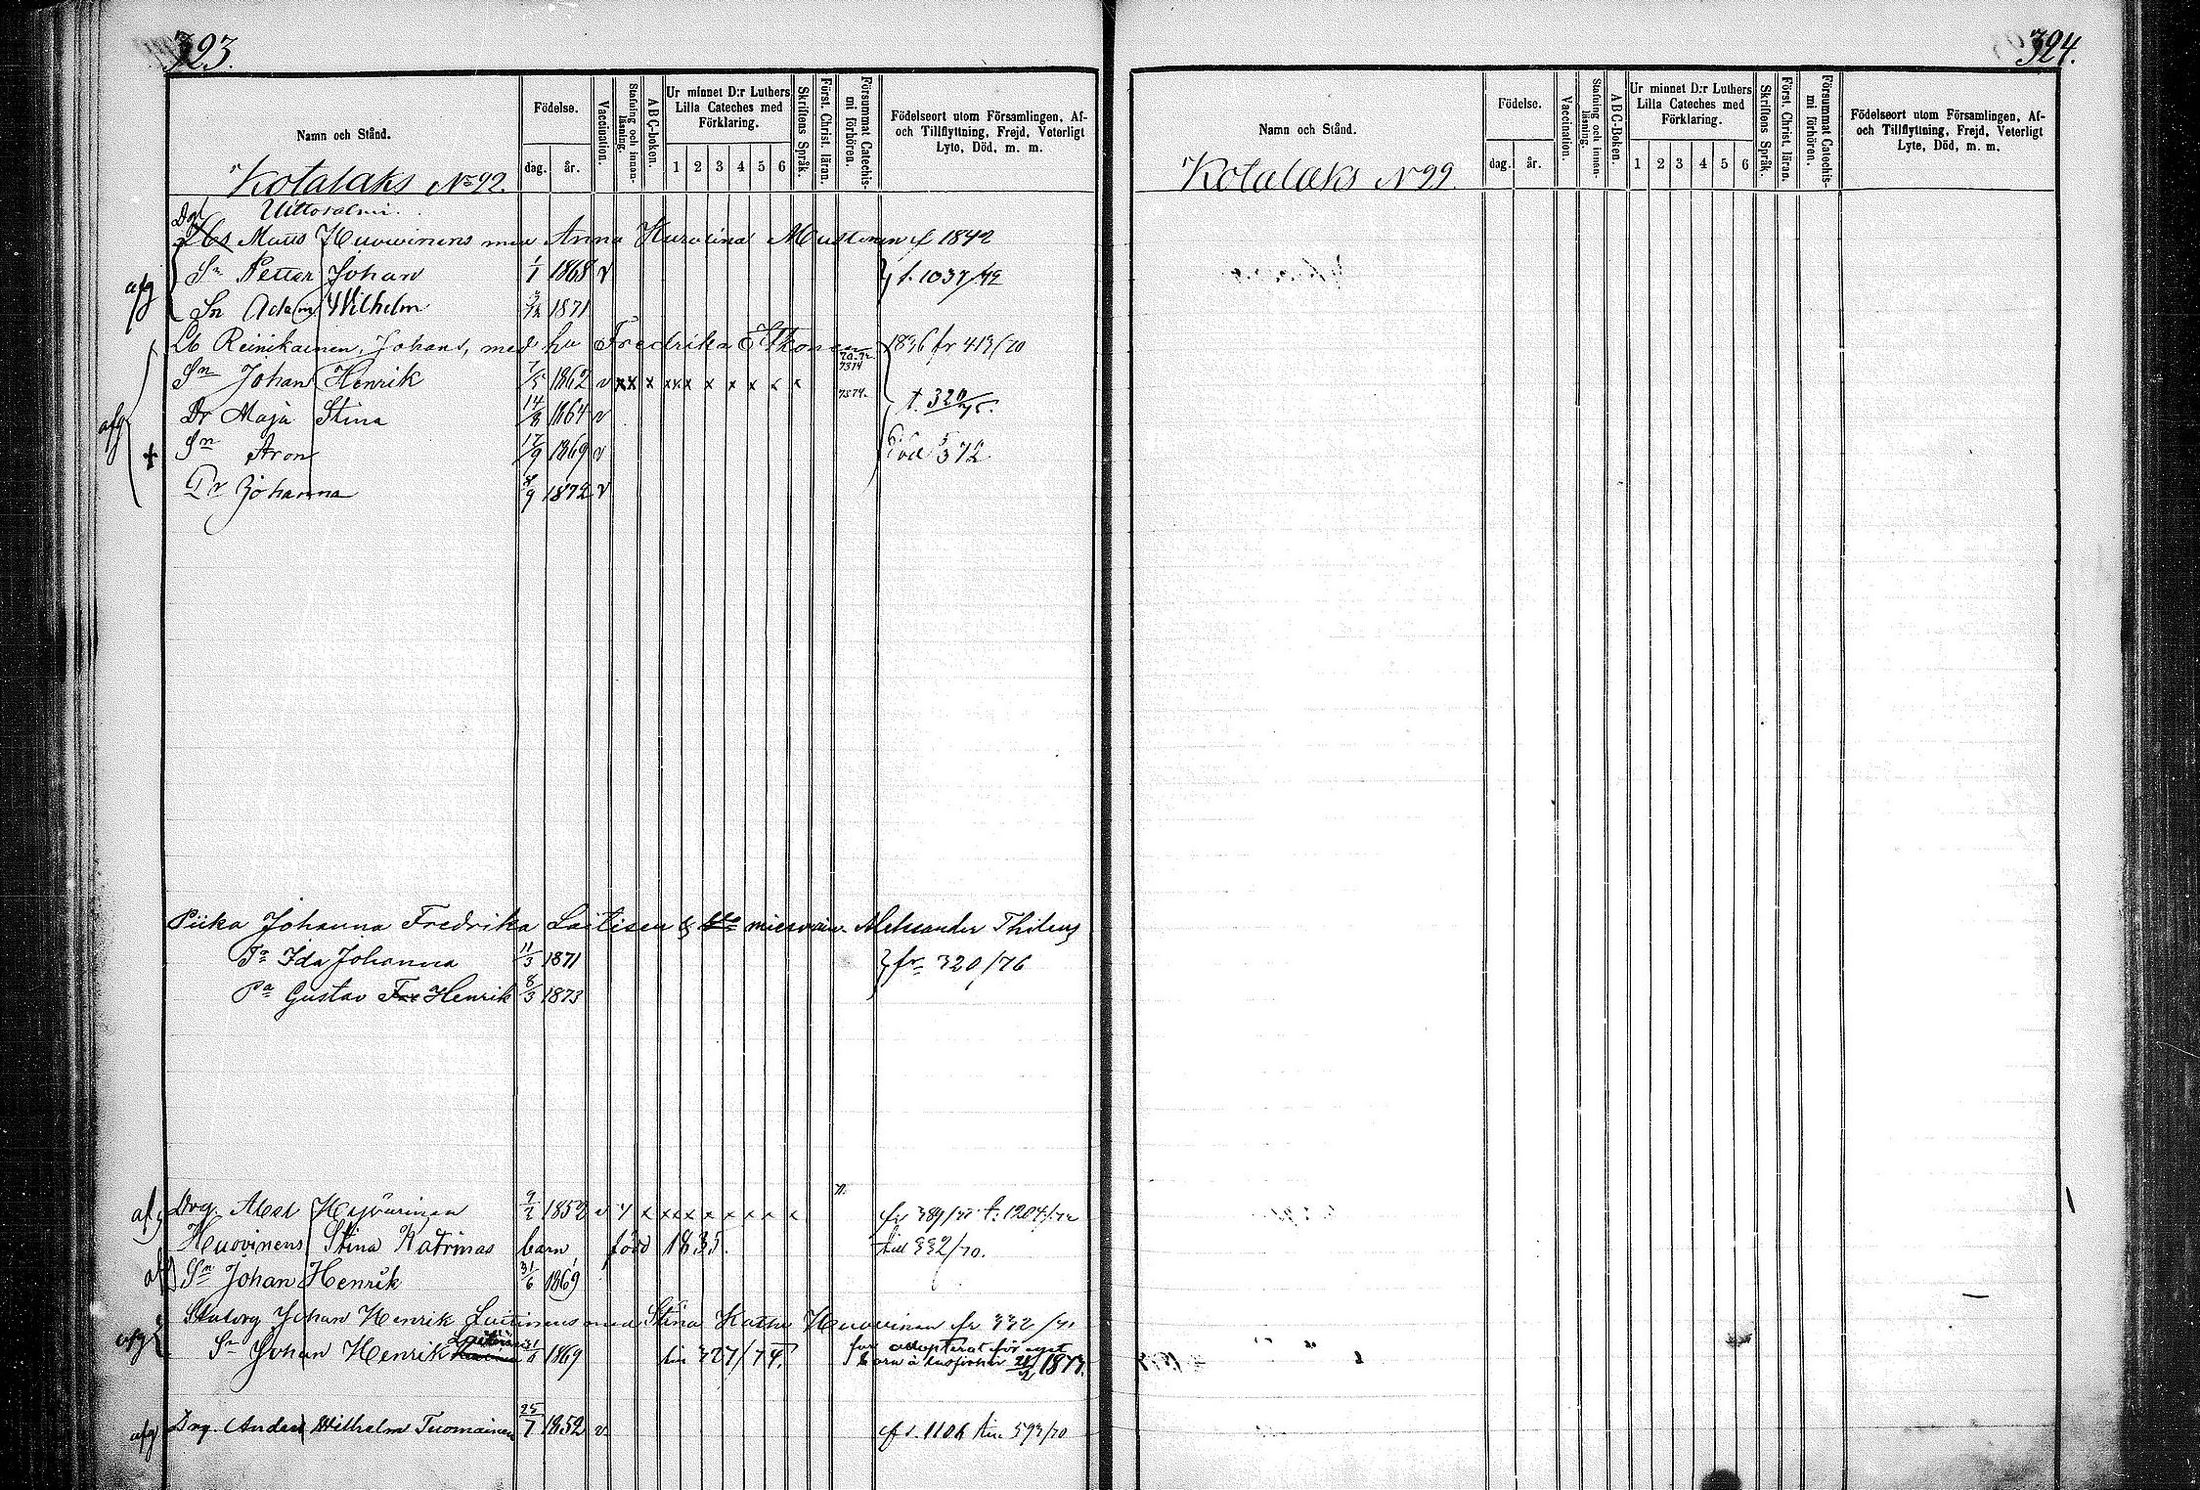 323.
Namn och Stånd.
Födelse.
dag.
år.
Vaccination.
Stafning och innan-läsning.
ABC-boken.
Ur minnet D:r Luthers Lilla Cateches med Förklaring.
1 2 3 4 5 6
Skriftens Språk.
Först. Christ. läran.
Försummat Catechis-mi förhören.
Födelseort utom Församlingen, Af- och Tillflyttning, Frejd, Veterligt Lyte, Död, m. m.
Kotalaks No 92.
Uittosalmi.
Matts Huovinens med Anna Karolina Mustonen f 1842
afg Sn Petter Johan 1/1 1868 v
Sn Adam Wilhelm 1871
Lb Reinikainen, Johans, med hu Fredrika Itkonen 1836 fr 413/70
Sn Johan Henrik 7/5 1862 v xx x xxx x x x x x
afg Dr Maja Stina 14/8 1864 v t. 320/75.
+ Sn Aron 17/9 1869 v
Dr Johanna 8/9 1872 v
Piika Johanna Fredrika Laitisen Aleksander Thilens
Ida Johanna 11/3 1871 fr 320/76
Gustav Henrik 8/3 1873
afg Drg. Abel 9/2 1852 v x xxx x x x x x fr 389/ t. 1204/72
Huovinens Stina Katrinas barn, född 1835. till 332/70.
Sn Johan Henrik 31/6 1869
Johan Henrik Laitinens med Stina Katr. Huovinen fr 332/71
afg Sn Johan Henrik 31/6 1869 till 327/74. adopterat för eget
barn 1873.
afg Drg. Anders Wilhelm Tuomainen 25/7 1852 v 1106 till 593/70
324.
Namn och Stånd.
Födelse.
dag.
år.
Vaccination.
Stafning och innan-läsning.
ABC-Boken.
Ur minnet D:r Luthers Lilla Cateches med Förklaring.
1 2 3 4 5 6
Skriftens Språk.
Först. Christ. läran.
Försummat Catechis-mi förhören.
Födelseort utom Församlingen, Af- och Tillflyttning, Frejd, Veterligt Lyte, Död, m. m.
Kotalaks N 99.